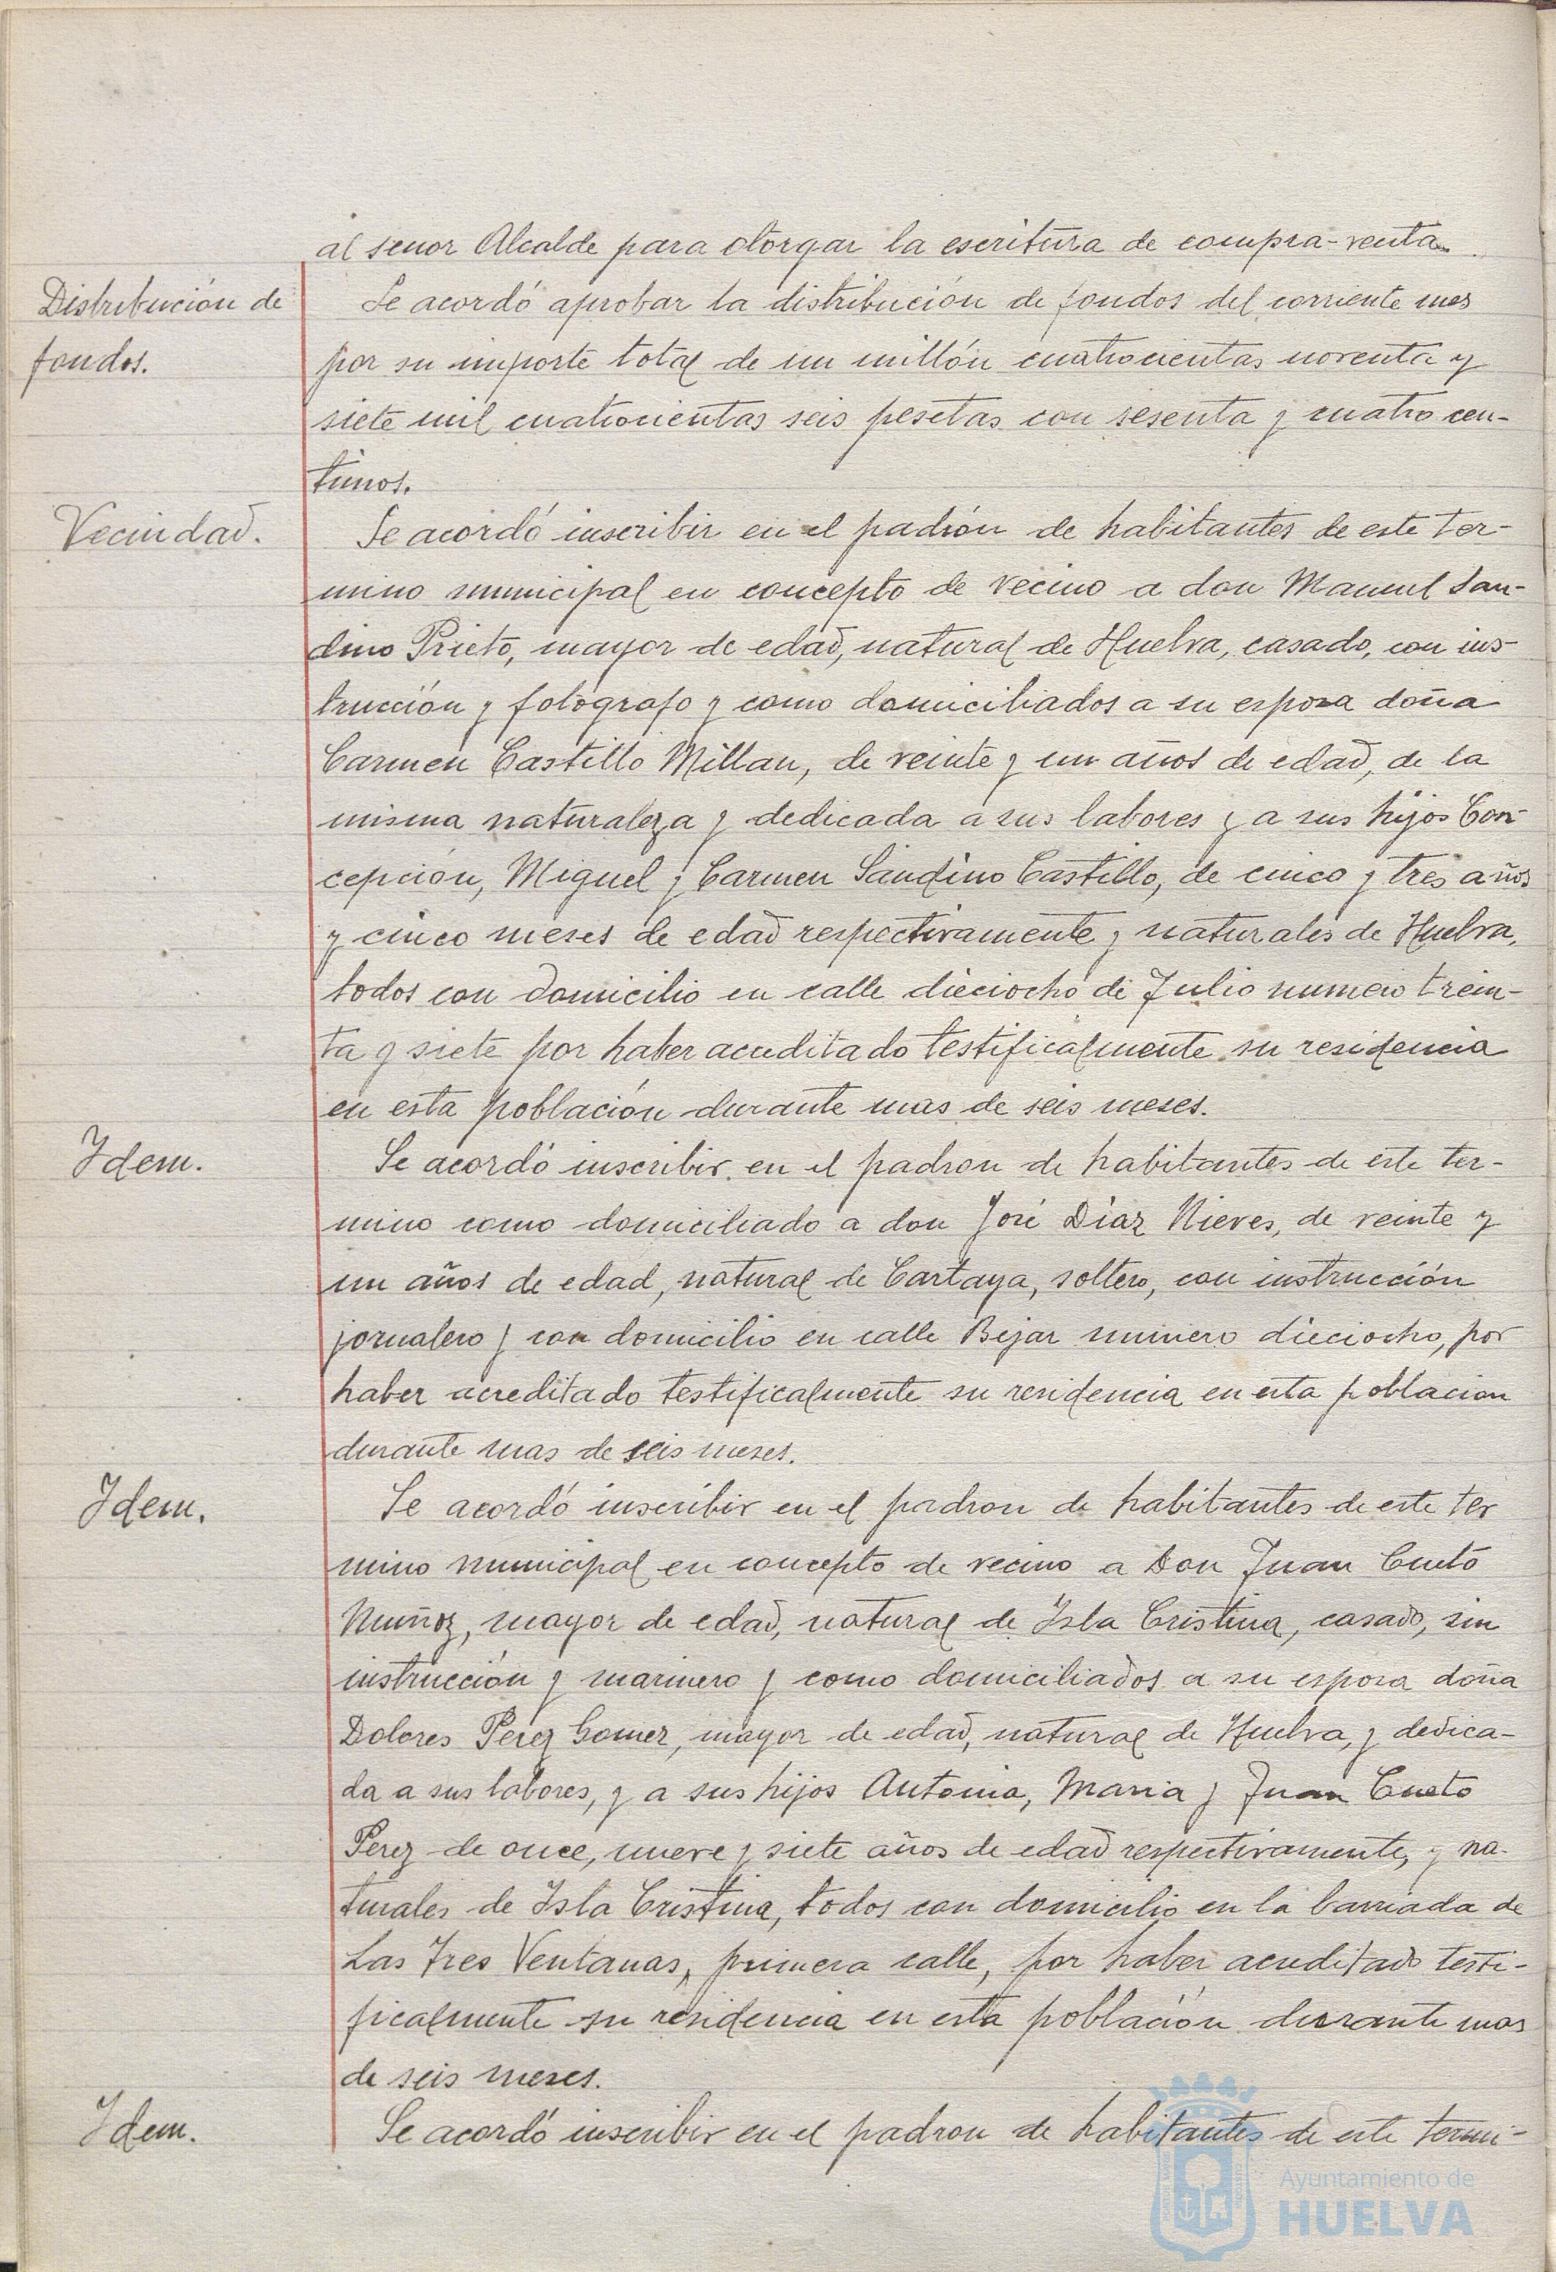 al senor Alcalde para otorgar la escritura de compra-venta.
Distribución de
fondos.
Se acordó aprobar la distribución de fondos del corriente mes
por su importe total de un millón cuatrocientas noventa y
siete mil cuatrocientas seis pesetas con sesenta y cuatro cen-
timos.
Vecindad.
Se acordó inscribir en el padrón de habitantes de este ter-
mino municipal en concepto de vecino a don Manuel San-
dino Prieto, mayor de edad, natural de Huelva, casado, con ins-
trucción y fotógrafo y como domiciliados a su esposa doña
Carmen Castillo Millan, de veinte y un años de edad, de la
misma naturaleza y dedicada a sus labores y a sus hijos Con-
cepción, Miguel y Carmen Sandino Castillo, de cinco y tres años
y cinco meses de edad respectivamente y naturales de Huelva,
todos con domicilio en calle dieciocho de Julio numero trein-
ta y siete por haber acreditado testificalmente su residencia
en esta población durante mas de seis meses.
Idem.
Se acordó inscribir en el padron de habitantes de este ter-
mino como domiciliado a don José Diaz Nieves, de veinte y
un años de edad, natural de Cartaya, soltero, con instrucción
jornalero y con domicilio en calle Bejar numero dieciocho, por
haber acreditado testificalmente su residencia en esta poblacion
durante mas de seis meses.
Idem.
Se acordó inscribir en el padron de habitantes de este ter
mino municipal en concepto de vecino a Don Juan Cueto
Muñoz, mayor de edad, natural de Isla Cristina, casado, sin
instrucción y marinero y como domiciliados a su esposa doña
Dolores Perez Gomez, mayor de edad, natural de Huelva, y dedica-
da a sus labores, y a sus hijos Antonia, Maria y Juan Cueto
Perez de once, nueve y siete años de edad respectivamente, y na-
turales de Isla Cristina, todos con domicilio en la barriada de
Las Tres Ventanas, primera calle, por haber acreditado testi-
ficalmente su residencia en esta población durante mas
de seis meses.
Idem.
Se acordó inscribir en el padron de habitantes de este termi-
Ayuntamiento de
HUELVA